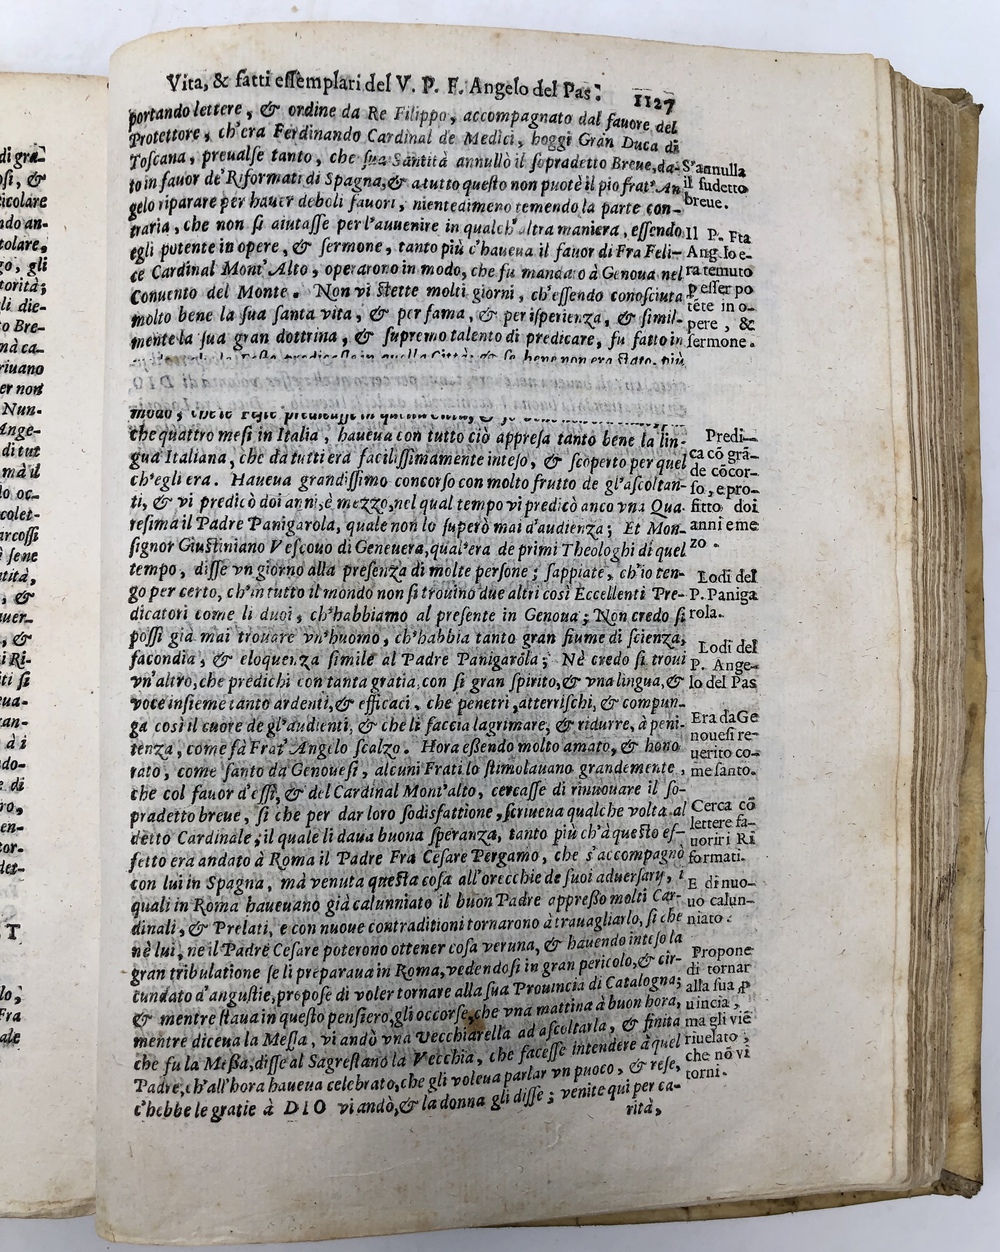 Vita, & fatti eſſemplari del V. P. F. Angelo del Pas: 1127
portando lettere, & ordine da Re Filippo, accompagnato dal fauore del
Protettore, ch'era Ferdinando Cardinal de Medici, hoggi Gran Duca di
Toſcana, preualſe tanto, che ſua Santità annullò il ſopradetto Breue, da-
to in fauor de' Riformati di Spagna, & a tutto queſto non puotè il pio frat' An
gelo riparare per hauer deboli fauori, nientedimeno temendo la parte con-
traria, che non ſi aiutaſſe per l'auuenire in qualch'altra maniera, eſſendo
egli potente in opere, & ſermone, tanto più c'haueua il fauor di Fra Feli-
ce Cardinal Mont'Alto, operarono in modo, che fu mandato à Genoua nel
Conuento del Monte. Non vi ſtette molti giorni, ch'eſſendo conoſciuta
molto bene la ſua ſanta vita, & per fama, & per iſperienza, & ſimil-
mente la ſua gran dottrina, & ſupremo talento di predicare, fu fatto in
modo, che le Feſte predicaſſe in quella Città, & ſe bene non era ſtato più
che quattro meſi in Italia, haueua con tutto ciò appreſa tanto bene la lin-
gua Italiana, che da tutti era faciliſſimamente inteſo, & ſcoperto per quel
ch'egli era. Haueua grandiſſimo concorſo con molto frutto de gl'aſcoltan-
ti, & vi predicò doi anni, è mezzo, nel qual tempo vi predicò anco vna Qua-
reſima il Padre Panigarola, quale non lo ſuperò mai d'audienza; Et Mon-
ſignor Giuſtiniano Veſcouo di Geneuera, qual'era de primi Theologhi di quel
tempo, diſſe vn giorno alla preſenza di molte perſone; ſappiate, ch'io ten-
go per certo, ch'in tutto il mondo non ſi trouino due altri così Eccellenti Pre-
dicatori come li duoi, ch'habbiamo al preſente in Genoua; Non credo ſi
poſſi già mai trouare vn'huomo, ch'habbia tanto gran fiume di ſcienza,
facondia, & eloquenza ſimile al Padre Panigaróla; Nè credo ſi troui
vn'altro, che predichi con tanta gratia, con ſi gran ſpirito, & vna lingua, &
voce inſieme tanto ardenti, & efficaci, che penetri, atterriſchi, & compun-
ga così il cuore de gl'audienti, & che li faccia lagrimare, & ridurre, à peni-
tenza, come fà Frat' Angelo ſcalzo. Hora eſſendo molto amato, & hono
rato, come ſanto da Genoueſi, alcuni Frati lo ſtimolauano grandemente,
che col fauor d'eſſi, & del Cardinal Mont'alto, cercaſſe di rinuouare il ſo-
pradetto breue, ſi che per dar loro ſodisfattione, ſcriueua qualche volta al
detto Cardinale, il quale li daua buona ſperanza, tanto più ch'à queſto ef-
fetto era andato à Roma il Padre Fra Ceſare Pergamo, che s'accompagnò
con lui in Spagna, mà venuta queſta coſa all'orecchie de ſuoi aduerſarij, i
quali in Roma haueuano già calunniato il buon Padre appreſſo molti Car-
dinali, & Prelati, e con nuoue contraditioni tornarono à trauagliarlo, ſi che
nè lui, ne il Padre Ceſare poterono ottener coſa veruna, & hauendo inteſo la
gran tribulatione ſe li preparaua in Roma, vedendoſi in gran pericolo, & cir-
cundato d'anguſtie, propoſe di voler tornare alla ſua Prouincia di Catalogna;
& mentre ſtaua in queſto penſiero, gli occorſe, che vna mattina à buon hora,
mentre diceua la Meſſa, vi andò vna vecchiarella ad aſcoltarla, & finita
che fu la Meſſa, diſſe al Sagreſtano la Vecchia, che faceſſe intendere à quel
Padre, ch'all'hora haueua celebrato, che gli voleua parlar vn puoco, & reſe,
c'hebbe le gratie à DIO vi andò, & la donna gli diſſe; venite qui per ca-
rità,
S'annulla
il ſudetto
breue.
Il P. Fra
Angelo e-
ra temuto
ꝑ eſſer po
tēte in o-
pere, &
ſermone.
Predi-
ca cō grā-
de cōcor-
ſo, e pro-
fitto doi
anni e me
zo.
Lodi del
P. Paniga
rola.
Lodi del
P. Ange-
lo del Pas
Era da Ge
noueſi re-
uerito co-
me ſanto.
Cerca cō
lettere fa-
uorir i Ri
formati.
E di nuo-
uo calun-
niato.
Propone
di tornar
alla ſua ꝓ
uincia,
ma gli viē
riuelato,
che nō vi
torni.